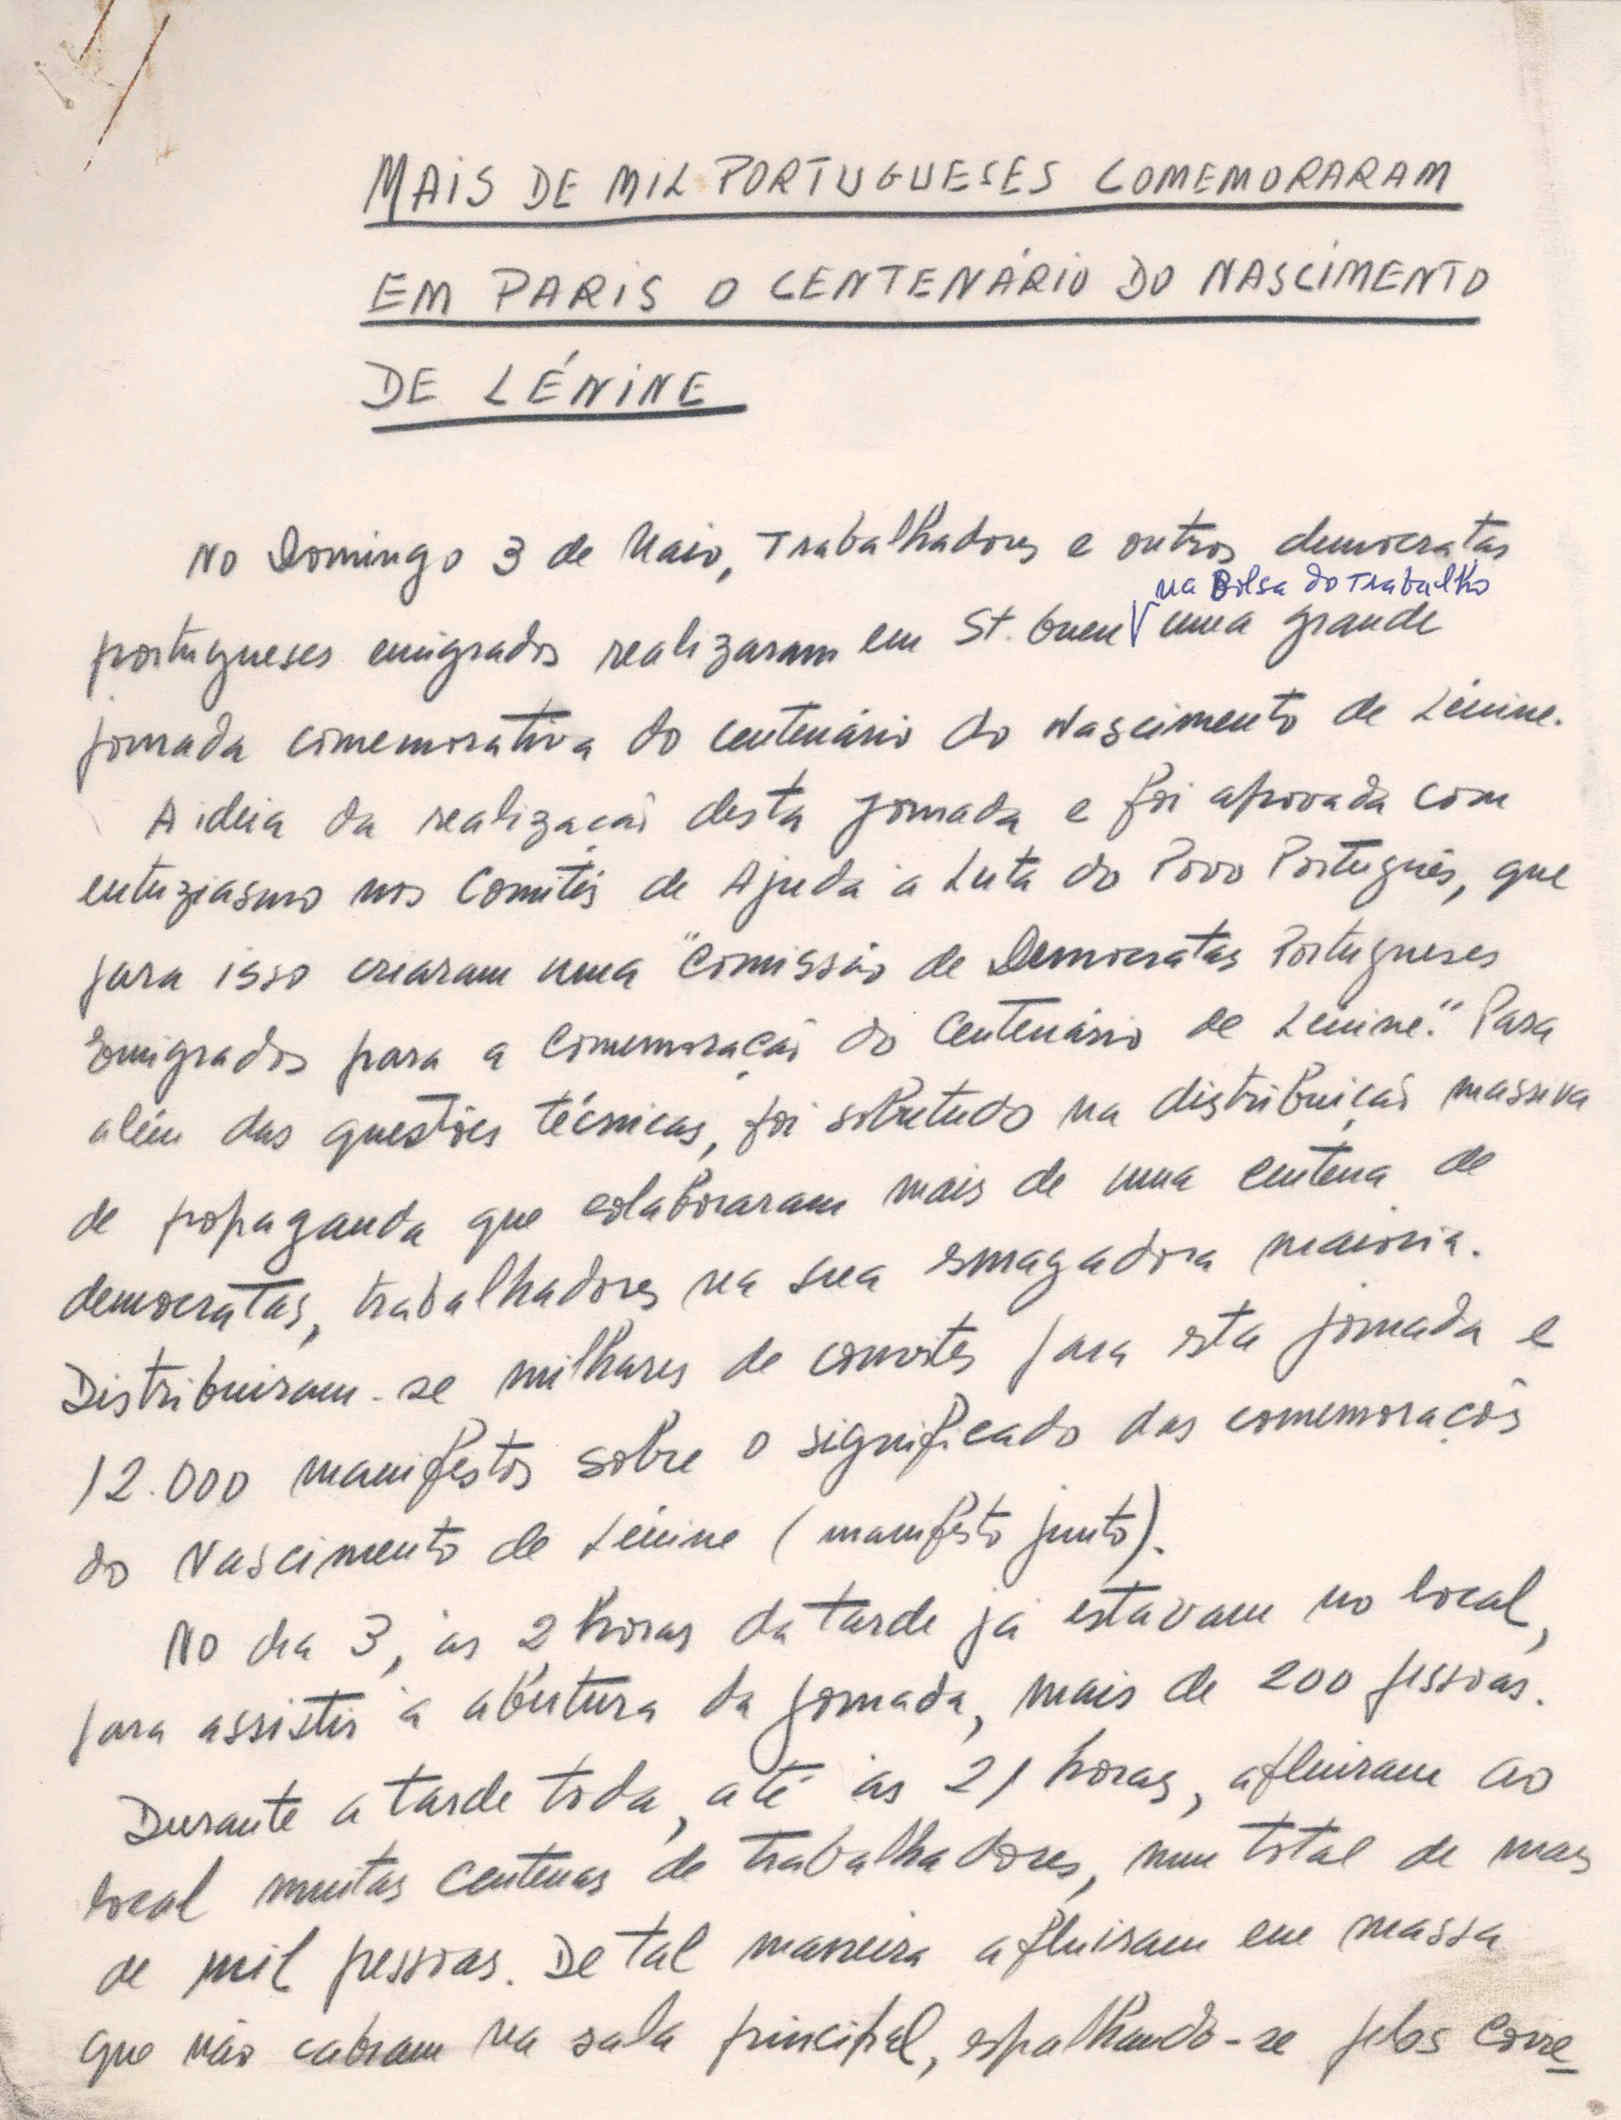 MAIS DE MIL PORTUGUESES COMEMORARAM
EM PARIS O CENTENÁRIO DO NASCIMENTO
DE LÉNINE
No Domingo 3 de Maio, Trabalhadores e outros democratas
na Bolsa do Trabalho
portugueses emigrados realizaram em St. Ouen uma grande
jornada comemorativa do centenário do Nascimento de Lénine.
A ideia da realização desta jornada e foi aprovada com
entuziasmo nos Comités de Ajuda à Luta do Povo Português, que
para isso criaram uma "Comissão de Democratas Portugueses
Emigrados para a Comemoração do Centenário de Lénine." Para
além das questões técnicas, foi sobretudo na distribuição massiva
de propaganda que colaboraram mais de uma centena de
democratas, trabalhadores na sua esmagadora maioria.
Distribuiram-se milhares de convites para esta jornada e
12.000 manifestos sobre o significado das comemorações
do Nascimento de Lénine (manifesto junto).
No dia 3, às 2 horas da tarde já estavam no local,
para assistir à abertura da jornada, mais de 200 pessoas.
Durante a tarde toda, até às 21 horas, afluiram ao
local muitas centenas de trabalhadores, num total de mais
de mil pessoas. De tal maneira afluiram em massa
que não cabiam na sala principal, espalhando-se pelos corre